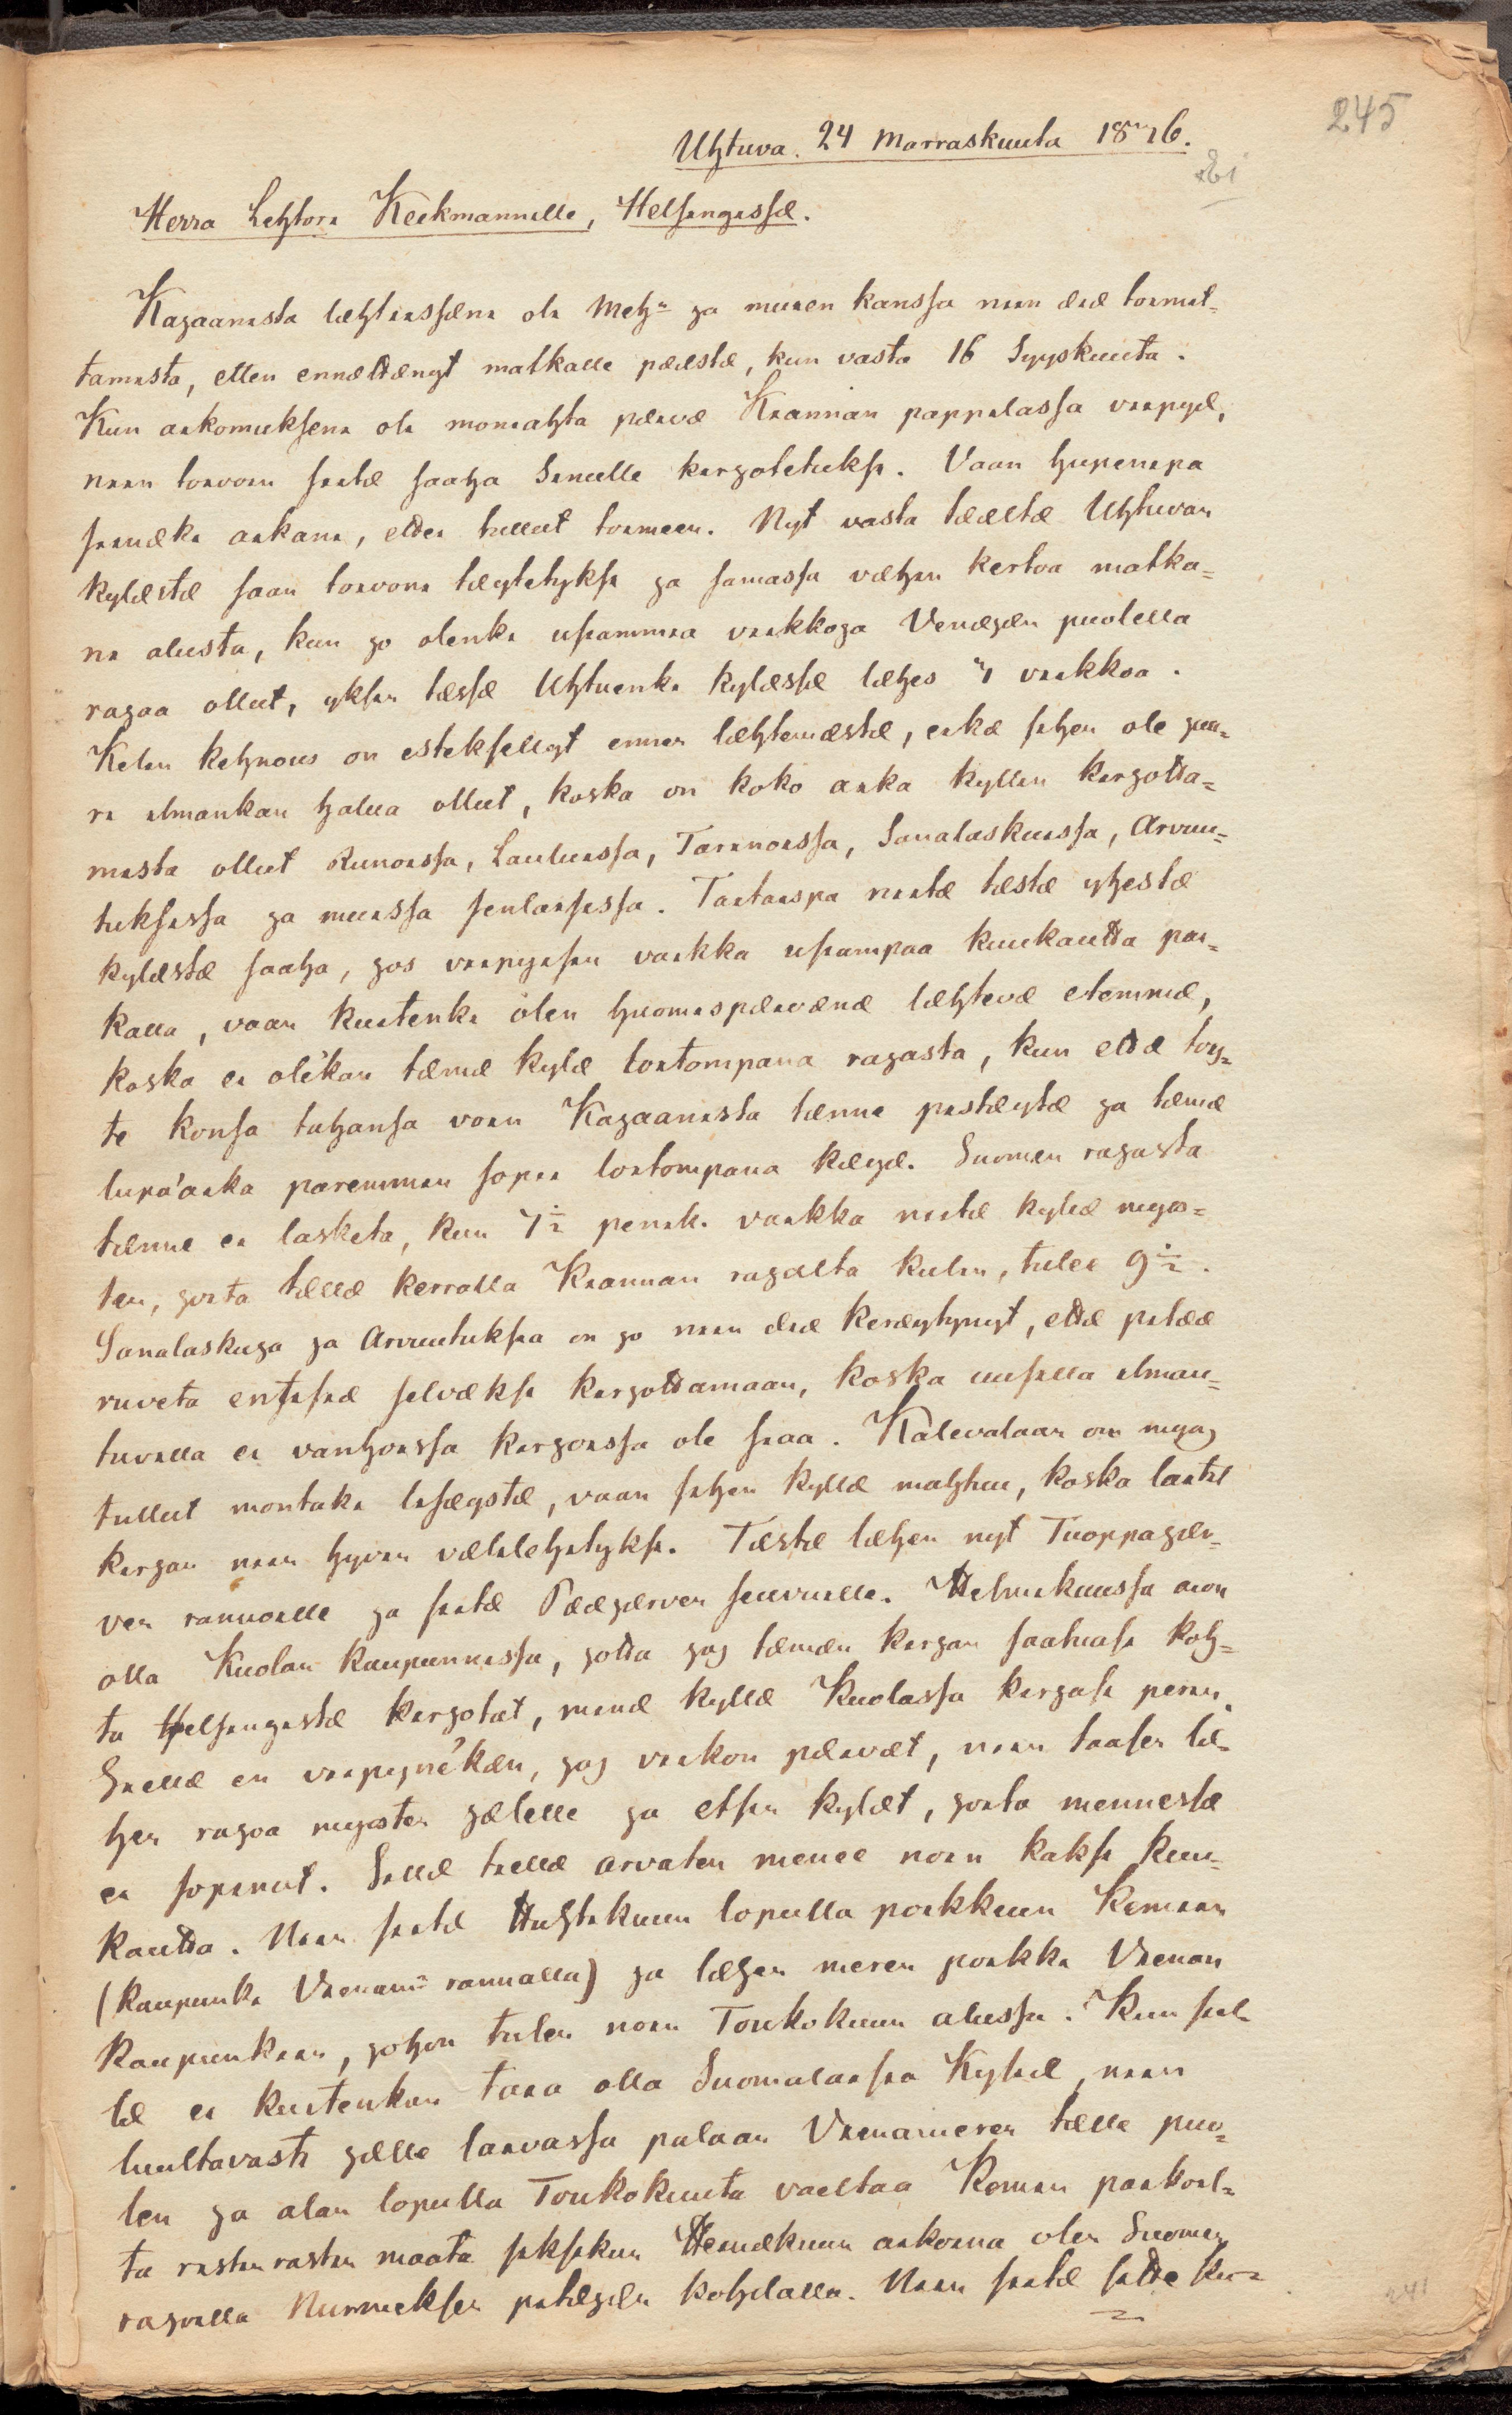 245
Uhtuva. 24 Marraskuuta 1836.
Herra Lehtori Keckmannille, Helsingissæ.
Kajaanista læhtiissæni oli Meh- ja muien kanssa niin æiæ toimit=
tamista, etten ennættænyt matkalle pææstæ, kun vasta 16 Syyskuuta.
Kun aikomukseni oli moniahta pæivæ Kiannan pappilassa viipyæ,
niin toivoin siitæ saaha Sinulle kirjotetuksi. Vaan hupenipa
siinæki aikani, ettei tullut toimeen. Nyt vasta tææltæ Uhtuvan
kylæstæ saan toivoni tæytetyksi ja samassa væhin kertoa matka=
ni alusta, kun jo olenki usiammia viikkoja Venæjæn puolella
rajaa ollut, yksin tæssæ Uhtuenki kylæssæ læhes 4 viikkoa.
Kelin kehnous on esteksellyt ennen læhtemæstæ, eikæ sihen ole juu=
ri ilmankan halua ollut, koska on koko aika kyllin kirjotta=
mista ollut Runoissa, Lauluissa, Tarinoissa, Sanalaskuissa, Arvuu=
tuksissa ja muissa senlaisissa. Taitaispa niitæ tæstæ yhestæ
kylæstæ saaha, jos viipyisin vaikka usiampaa kuukautta pai=
kalla, vaan kuitenki olen huomispæivænæ læhtevæ etemmæ,
koska ei ole'kan tæmæ kylæ loitompana rajasta, kun ettæ toi=
te konsa tahansa voin Kajaanista tænne pistæytæ ja tæmæ
lupa'aika paremmin sopii loitompana kæyæ. Suomen rajasta
tænne ei lasketa, kun 7½ penik. vaikka niitæ kyliæ myö=
ten, joita tællæ kerralla Kiannan rajalta kulin, tulee 9½.
Sanalaskuja ja Arvuutuksia on jo niin æiæ keræytynyt, ettæ pitææ
ruveta entisiæ selvæksi kirjottamaan, koska uusilla ilman=
tuvilla ei vanhoissa kirjoissa ole siaa. Kalevalaan on myös
tullut montaki lisæystæ, vaan sihen kyllæ mahtuu, koska laitit
kirjan niin hyvin vælilehityksi. Tæstæ læhen nyt Tuoppajær=
ven rannoille ja siitæ Pææjærven seuvuille. Helmikuussa aion
olla Kuolan kaupunnissa, jotta jos tæmæn kirjan saatuasi koh=
ta Helsingistæ kirjotat, minæ kyllæ Kuolassa kirjasi perin.
Siellæ en viipyne'kæn, jos viikon pæivæt, niin taasen læ=
hen rajoa myösten jælelle ja etsin kylæt, joita mennessæ
ei sopinut. Sillæ tiellæ arvaten menee noin kaksi kuu=
kautta. Niin siitæ Huhtikuun lopulla poikkeun Kemiin
(kaupunki Vienan- rannalla) ja læhen meren poikki Vienan
kaupunkiin, johon tulen noin Toukokuun alussa. Kun siel=
læ ei kuitenkan taia olla Suomalaisia Kyliæ, niin
luultavasti jælle laivassa palaan Vienanmeren tælle puo=
len ja alan lopulla Toukokuuta vaeltaa Kemin paikoil=
ta ristin rastin maata siksikun Heinækuun aikoina olen Suomen
rajoilla Nurmeksen pitæjæn kohdalla. Niin siitæ sitte ki=
241